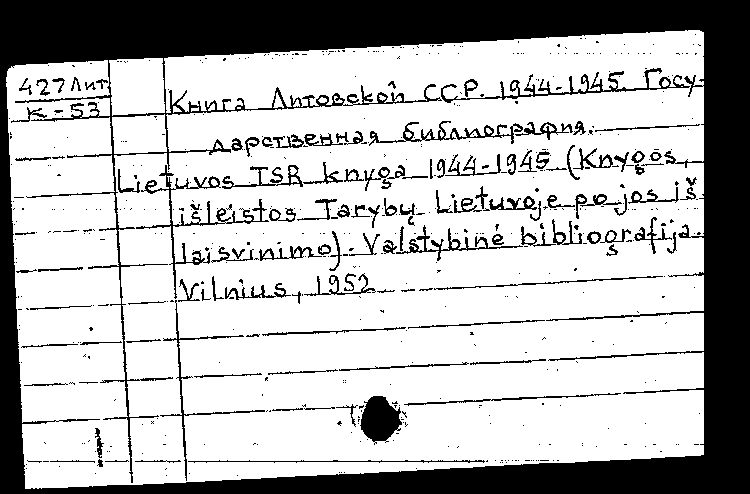 427 Лит.
К-53
Книга Литовской ССР. 1944-1945. Госу-
дарственная библиография.
Lietuvos TSR knyga 1944-1945 (Knygos,
išleistos Tarybų Lietuvoje po jos iš-
laisvinimo). Valstybinė bibliografija.
Vilnius, 1952